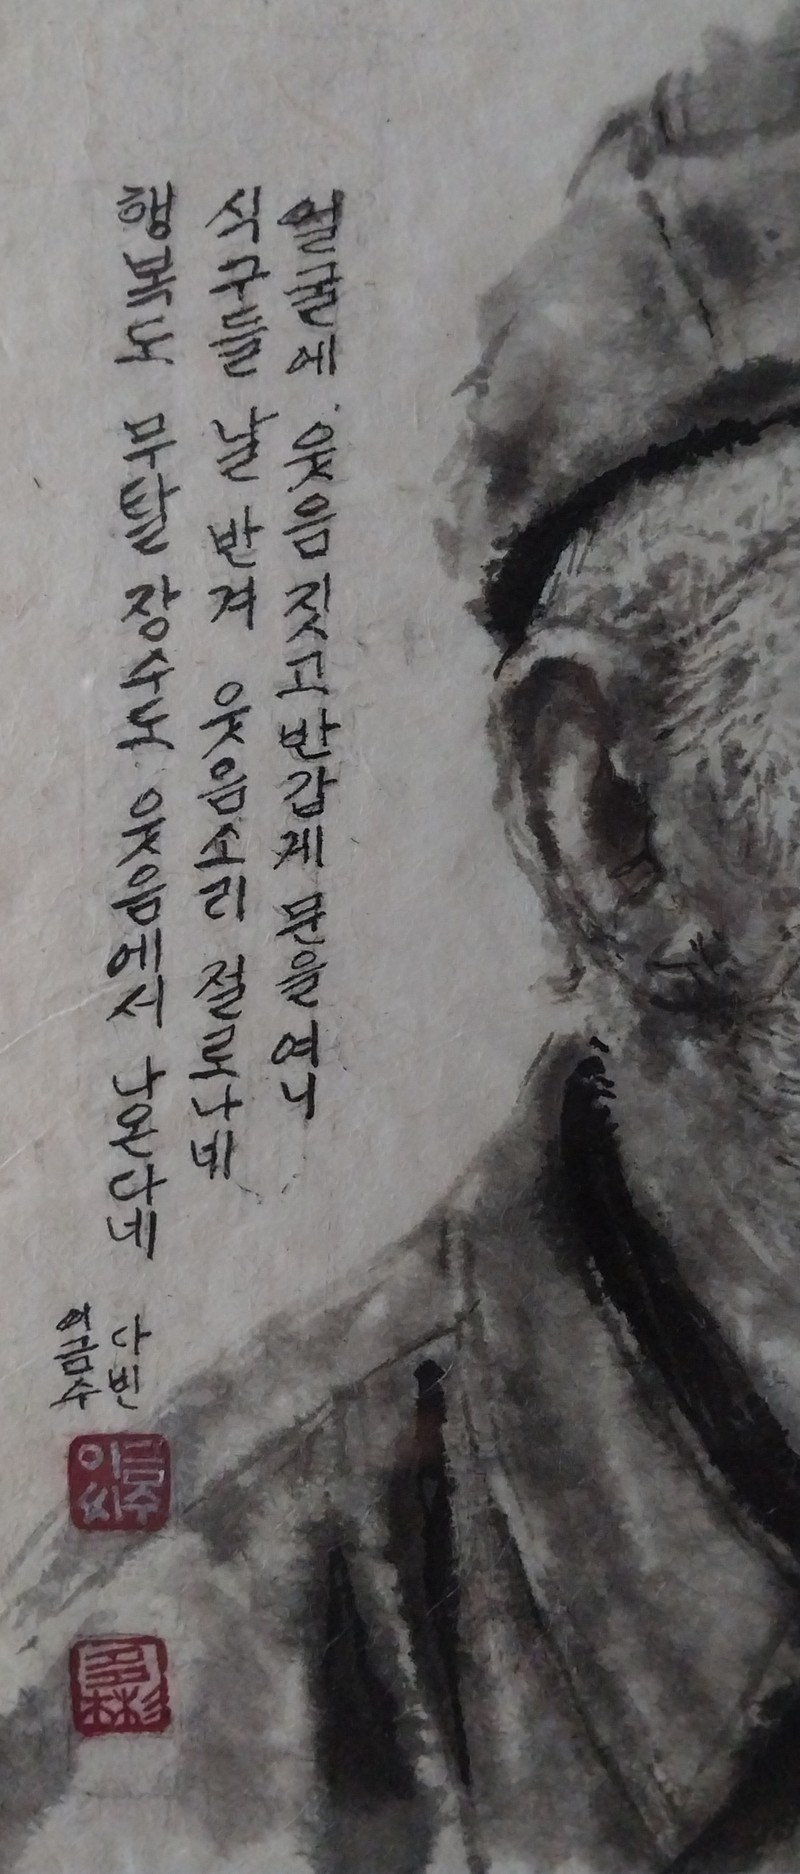 얼굴에 웃음 짓고 반갑게 문을 여니
식구들 날 반겨 웃음소리 절로나네
행복도 무탈 장수도 웃음에서 나온다네
다빈
이금수